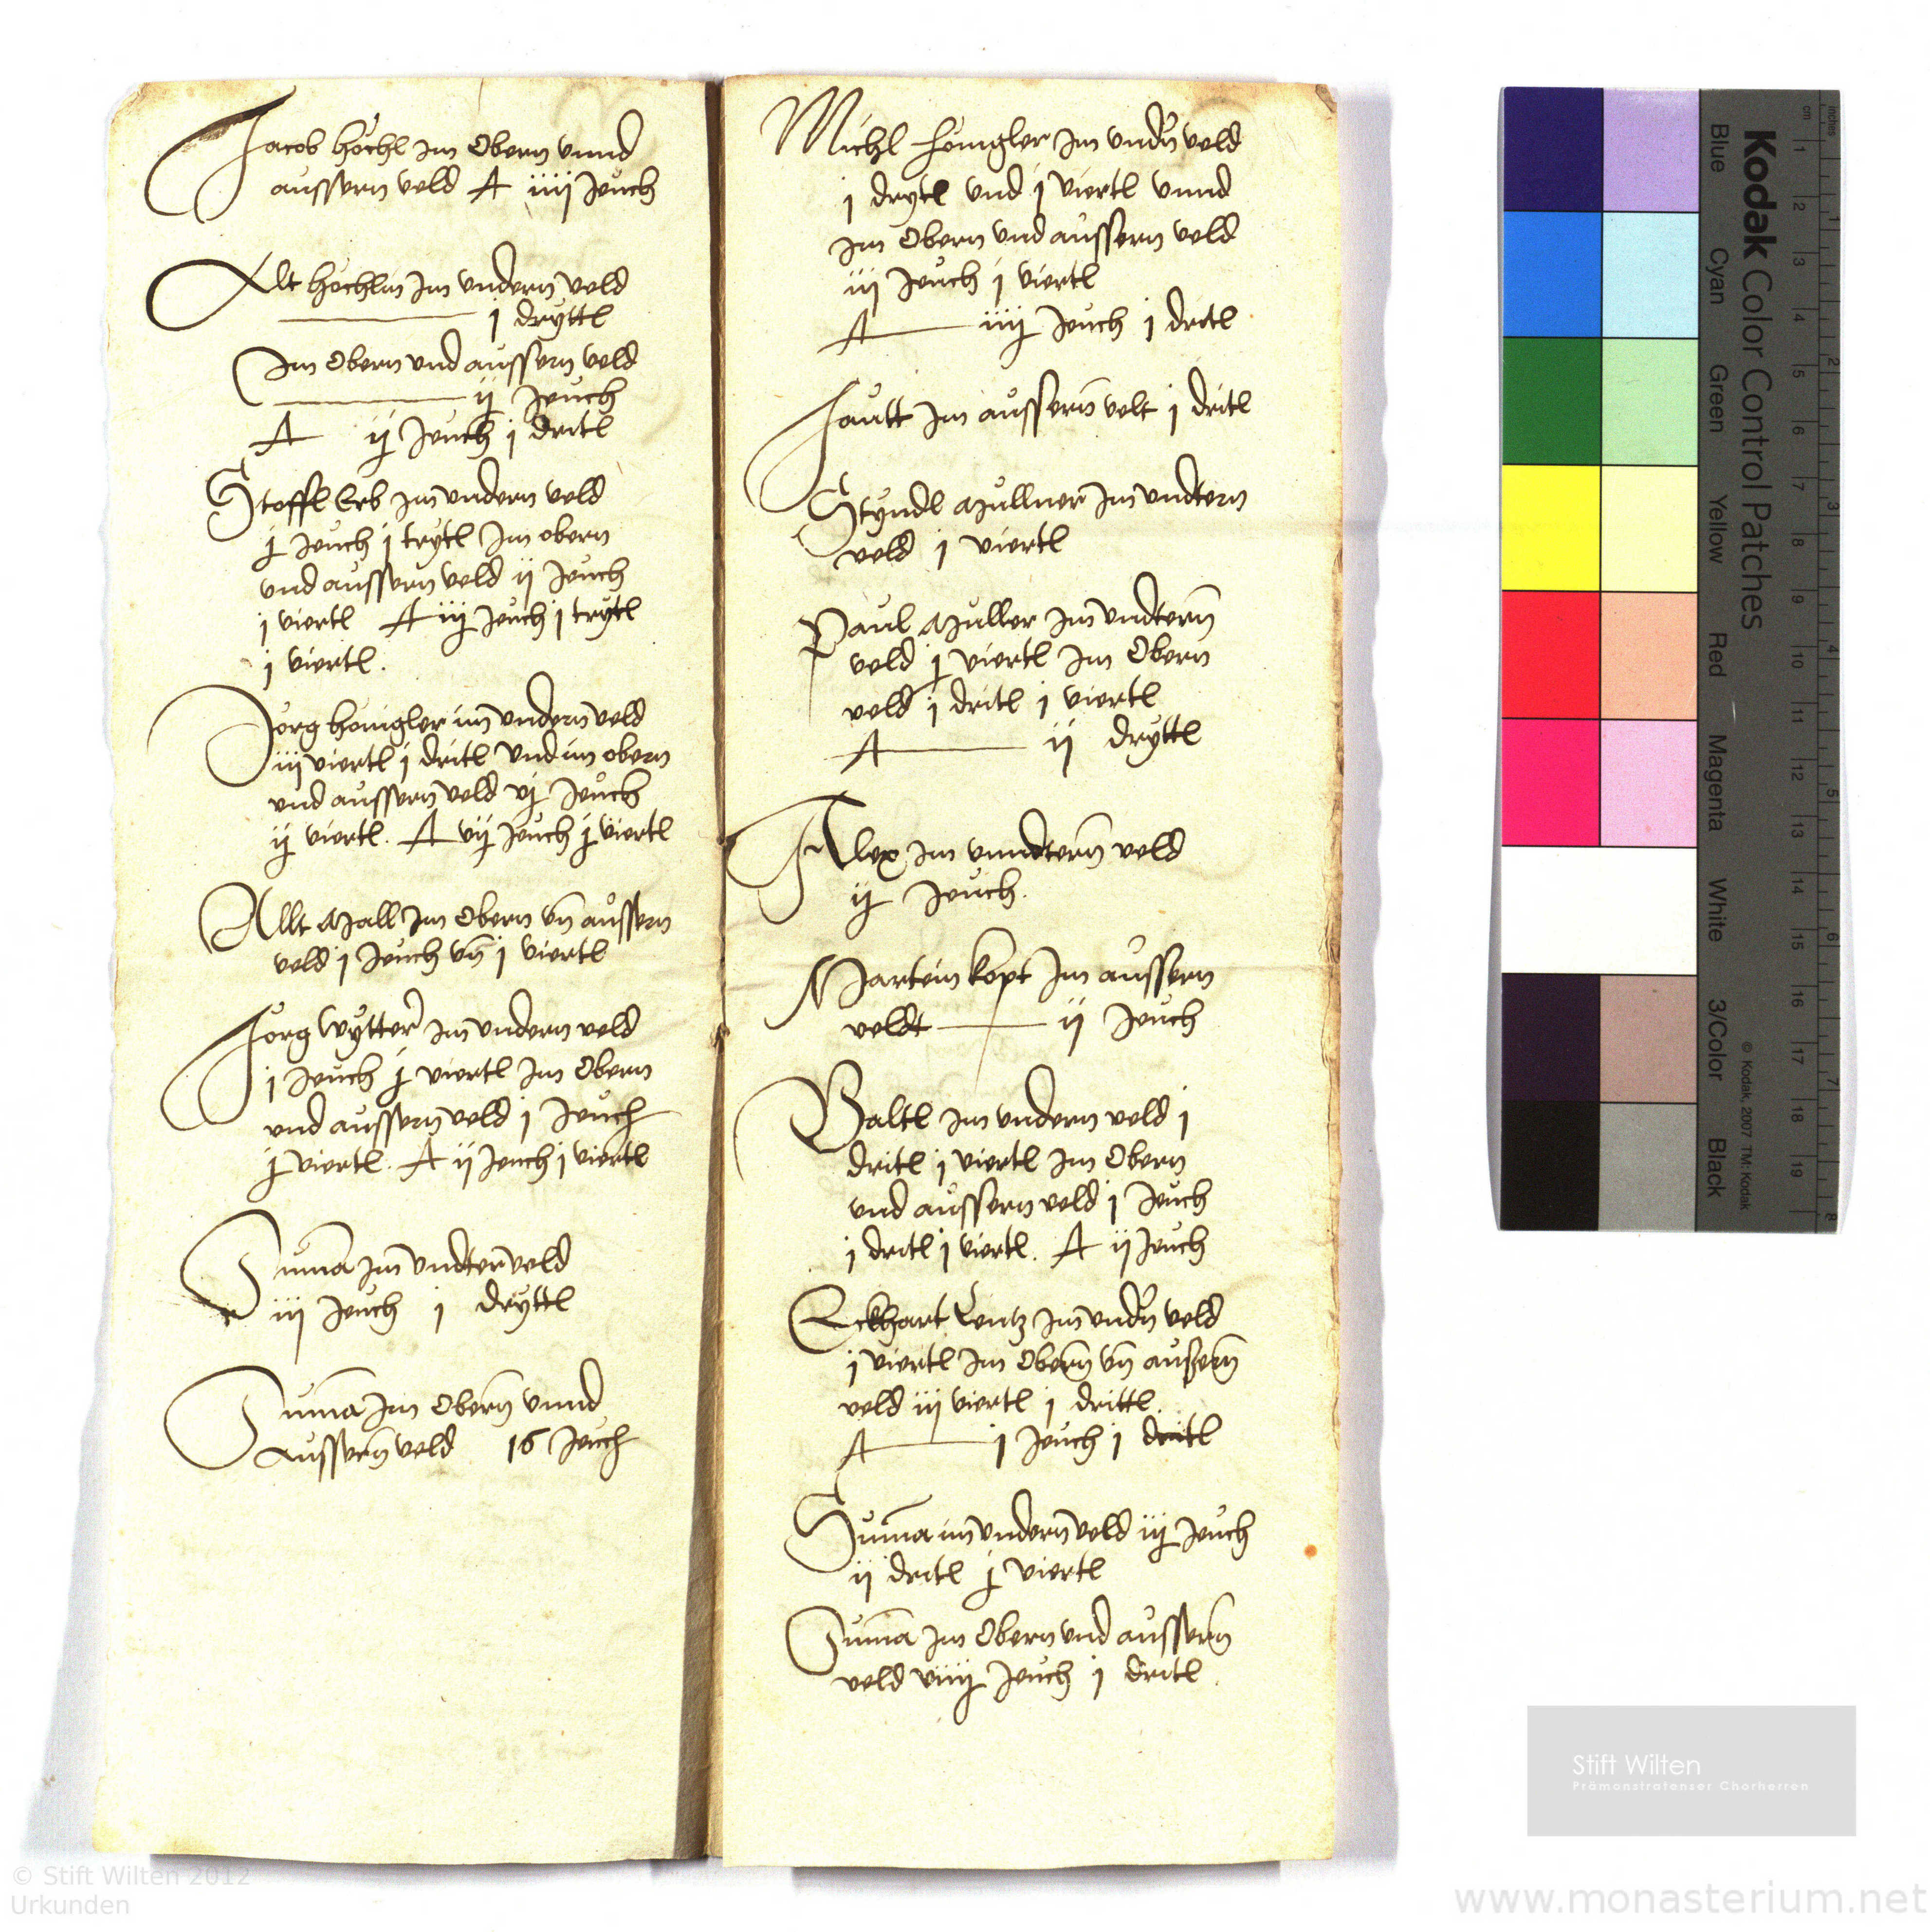 Jacob höchl Im Obern vnnd
aussern veld A iiij Jeuch
Alt höchlin Im vndern veld
j dryttl
Im Obern vnd aussern veld
ij Jeuch
A ij Jeuch j dritl
Stoffl Erb Im vndern veld
j Jeuch j trytl Im obern
vnd aussern veld ij Jeuch
j viertl A iij Jeuch j trytl
j viertl.
Jörg hönigler im vndern veld
iij viertl j dritl vnd im obern
vnd aussern veld vj Jeuch
ij viertl. A vij Jeuch j viertl
Allt Mall Im Obern vn̄ aussern
veld j Jeuch vn̄ j viertl
Jörg Wytter Im vndern veld
j Jeuch j viertl Im Obern
vnd aussern veld j Jeuch
j viertl. A ij Jeuch j viertl
Suma Im vndter veld
iij Jeuch j dryttl
Suma Im Obern̄ vnnd
aussern̄ veld 16 Jeuch
Michl hönigler Im vndn̄ veld
j drytl vnd j viertl vnnd
Im Obern vnd aussern veld
iij Jeuch j viertl
A iiij Jeuch j dritl
Jautt Im aussern̄ velt j dritl
Styndl Müllner Im vndtern
veld j viertl
Paul Muller Im vndtern̄
veld j viertl Im Obern
veld j dritl j viertl
A ij dryttl
Alex Im vnndtern̄ veld
ij Jeuch.
Martein kopt Im aussern
veldt ij Jeuch
Baltl Im vndern veld j
dritl j viertl Im Obern
vnd aussern veld j Jeuch
j dritl j viertl. A ij Jeuch
Eckhart Lentz Im vndn̄ veld
j viertl Im Obern̄ vn̄ aussern̄
veld iij viertl j drittl.
A j Jeuch j dritl
Suma im vndern̄ veld iij Jeuch
ij dritl j viertl
Suma Im Obern vnd aussern̄
veld viiij Jeuch j dritl.
Kodak Color Control Patches
Blue Cyan Green Yellow Red Magenta White 3/Color Black
© Kodak, 2007 TM: Kodak
inches 1 2 3 4 5 6 7 8
cm 1 2 3 4 5 6 7 8 9 10 11 12 13 14 15 16 17 18 19
Stift Wilten
Prämonstratenser Chorherren
© Stift Wilten 2012
Urkunden
www.monasterium.net